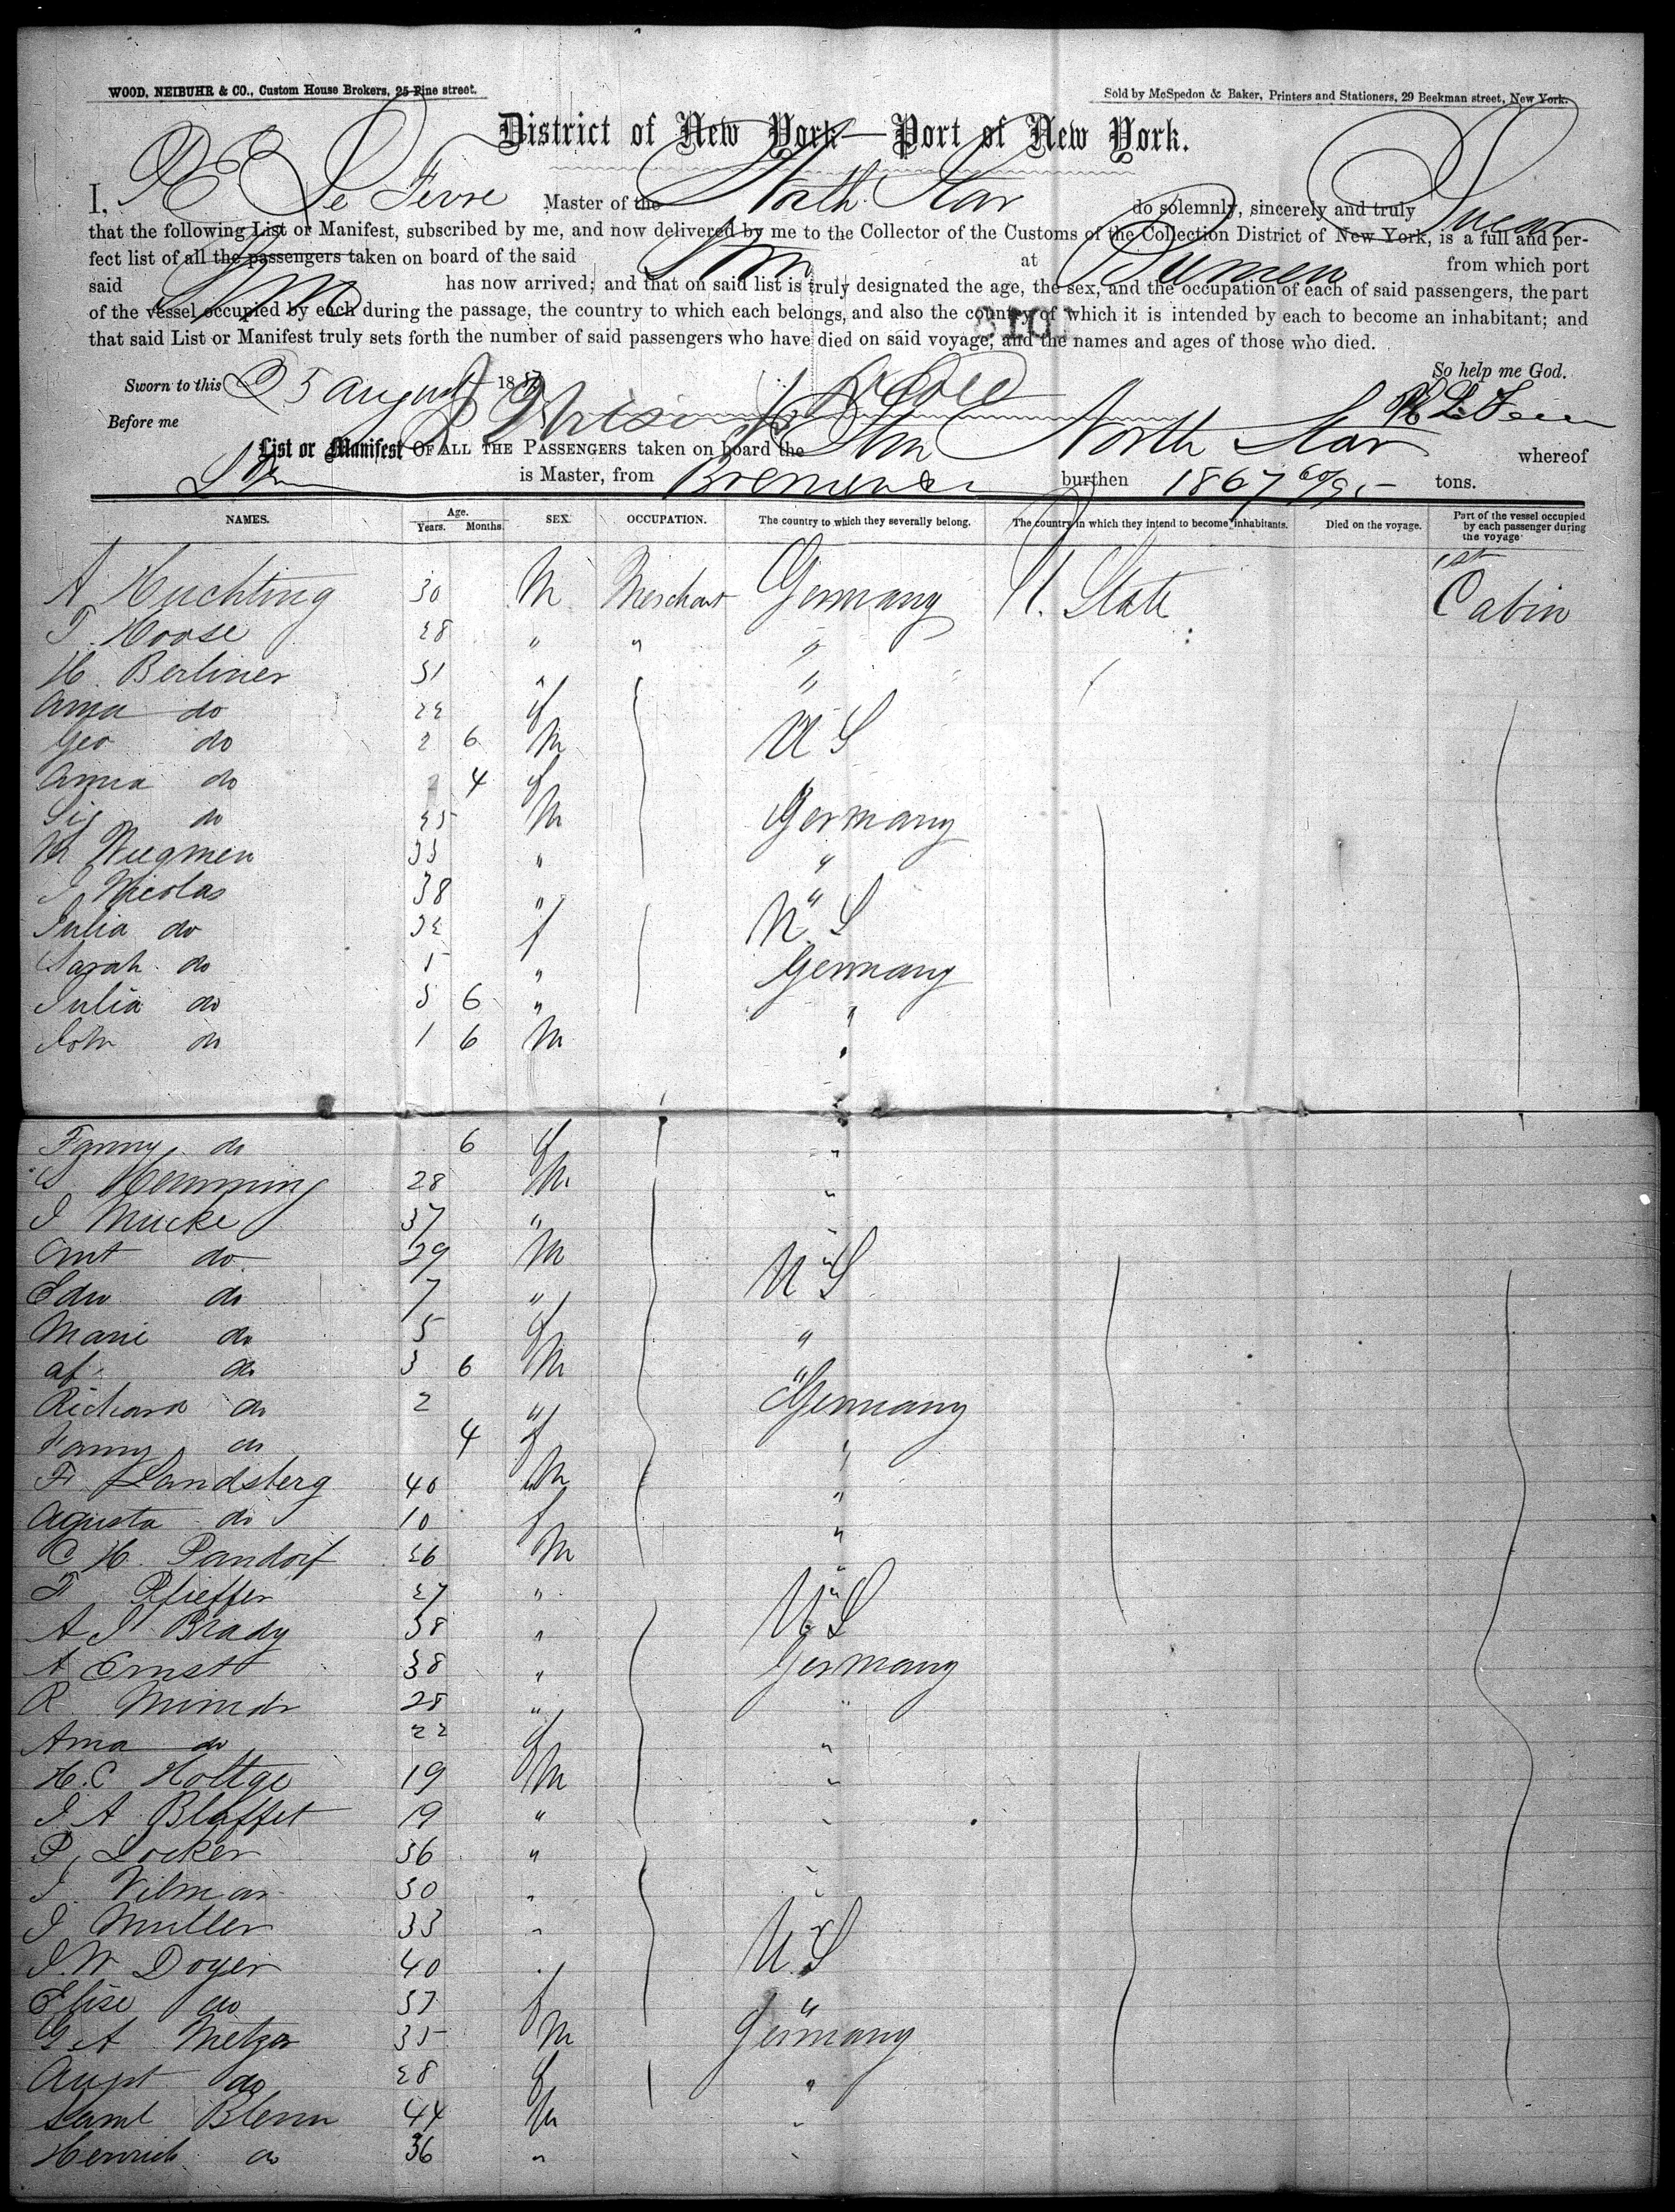 WOOD, NEIBUHR & CO., Custom House Brokers, 25 Pine street.
Sold by McSpedon & Baker, Printers and Stationers, 29 Beekman street, New York.
District of New York—Port of New York.
I, Le Fevre Master of the North Star do solemnly, sincerely and truly Swear
that the following List or Manifest, subscribed by me, and now delivered by me to the Collector of the Customs of the Collection District of New York, is a full and per-
fect list of all the passengers taken on board of the said Stm at Bremen from which port
said Stm has now arrived; and that on said list is truly designated the age, the sex, and the occupation of each of said passengers, the part
of the vessel occupied by each during the passage, the country to which each belongs, and also the country of which it is intended by each to become an inhabitant; and
that said List or Manifest truly sets forth the number of said passengers who have died on said voyage, and the names and ages of those who died.
So help me God.
Sworn to this 25 August 1857
Before me
List or Manifest OF ALL THE PASSENGERS taken on board the Stm North Star whereof
is Master, from Bremen burthen 1867 60/95 tons.
NAMES. Age. Years. Months. SEX. OCCUPATION. The country to which they severally belong. The country in which they intend to become inhabitants. Died on the voyage. Part of the vessel occupied by each passenger during the voyage
A Huchting 30 M Merchant Germany U. State 1st Cabin
T. Hoose 28 " " "
H. Berliner 31 " "
Anna do 22 f U S
Geo do 2 6 M
Anna do 4 f
Sig do 25 M Germany
M Wiegmen 33 " "
J Nicolas 38 " "
Julia do 32 f U S
Sarah do 5 " Germany
Julia do 3 6 " "
John do 1 6 M "
Fanny do 6 f "
Hemming 28 M "
J Mucke 37 " "
do 29 M U S
Edw do 7 "
Marie do 5 f "
do 3 6 M "
Richard do 2 " Germany
Fanny do 4 f "
F. Landsberg 40 M "
Agusta do 10 f "
C H. Pandorf 26 M "
F Pfieffer 27 " "
A J Brady 38 " U S
A Ernst 38 " Germany
R 28 " "
Anna do 22 f "
H. C Holtge 19 M "
J A Blaffet 19 " "
P, Locker 36 "
J. Vilmar 30 " "
J Muller 33 " "
J. W Doyer 40 " U. S
Elise do 37 f "
G A Metzger 35 M Germany
Augst do 28 f "
Saml Blenn 44 M "
Henrich do 36 " "